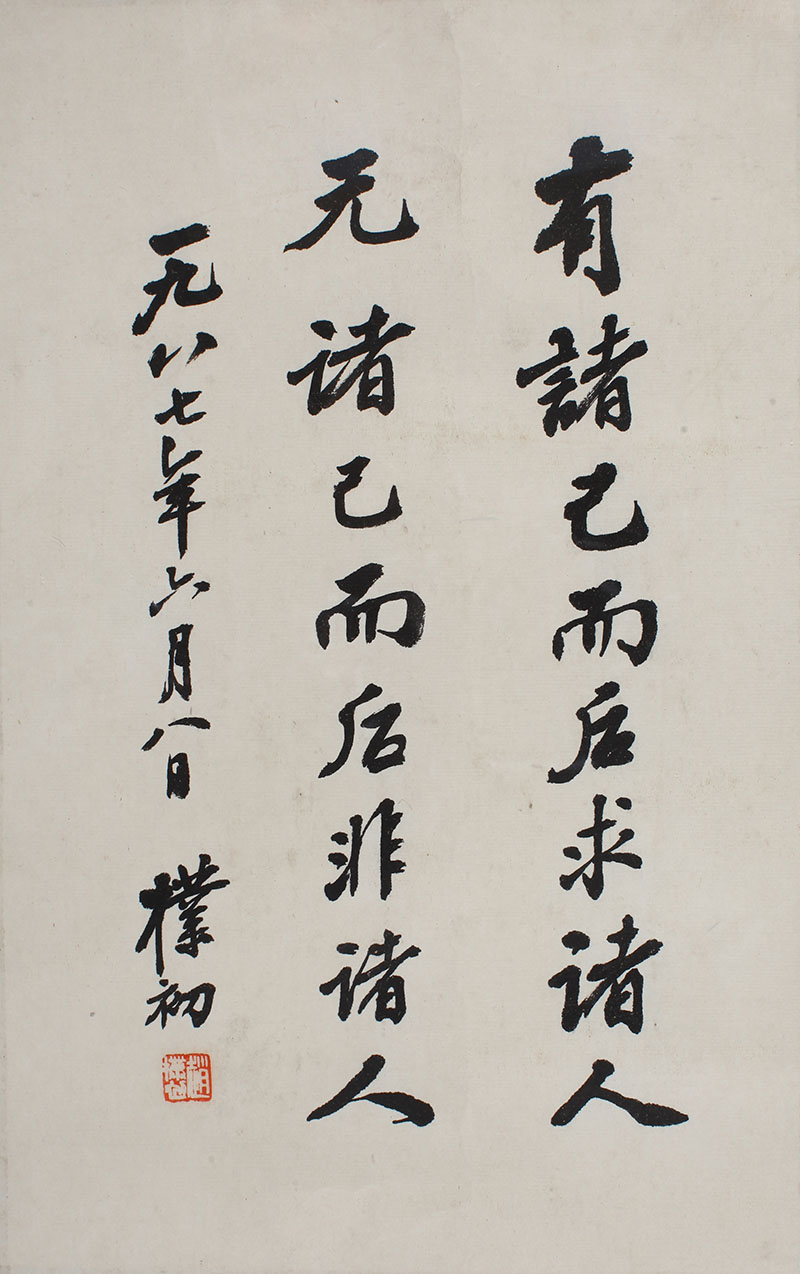 有諸己而后求诸人
无诸己而后非诸人
一九八七年六月八日 樸初
趙樸初